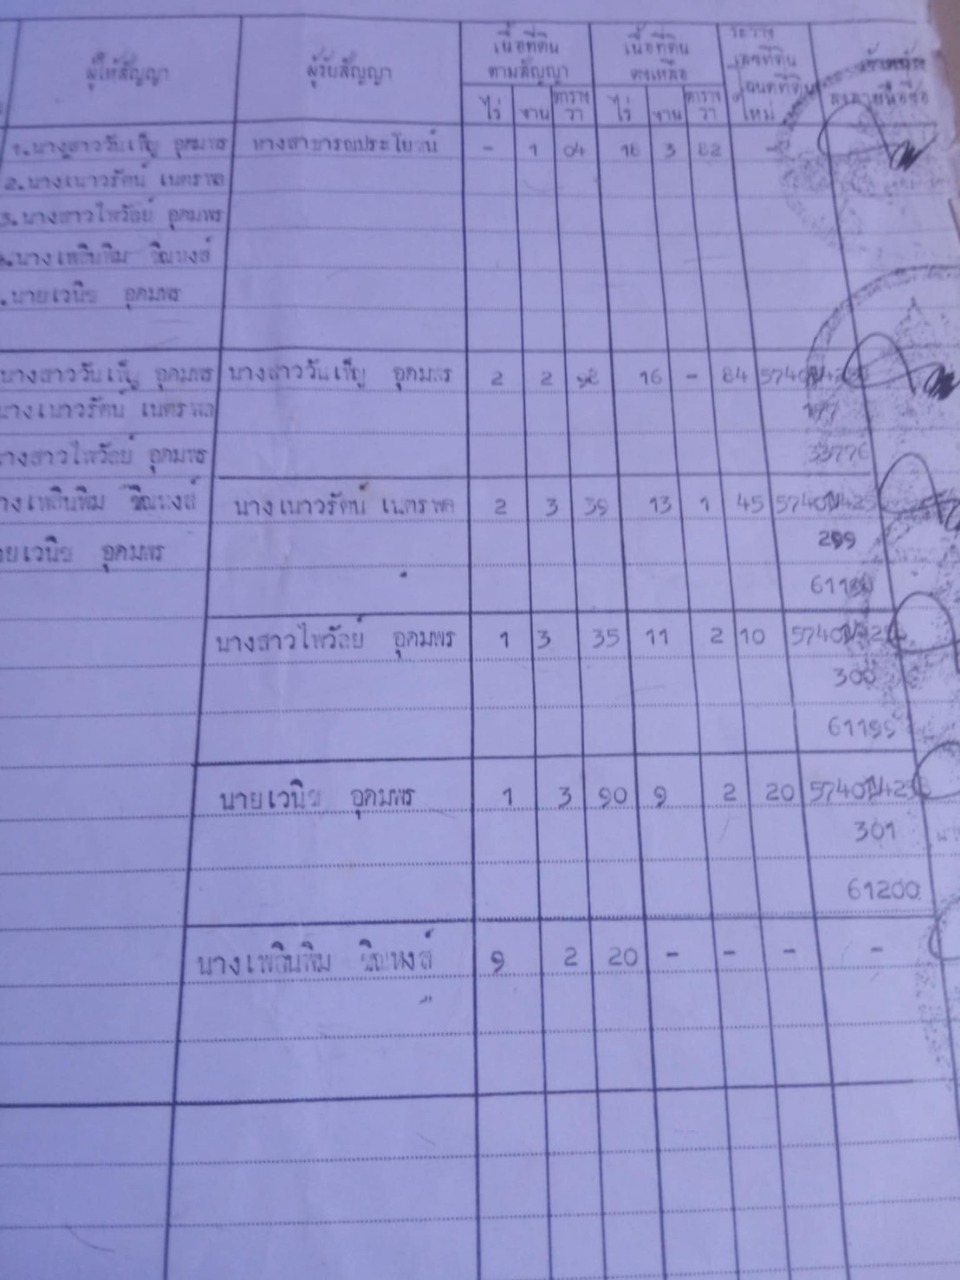 ผู้ให้สัญญา ผู้รับสัญญา เนื้อที่ดิน ตามสัญญา เนื้อที่ดิน คงเหลือ ระวาง เลขที่ดิน โฉนดที่ดิน ใหม่
ไร่ งาน ตารางวา ไร่ งาน ตารางวา
1.นางสาววันเพ็ญ อุดมพร ทางสาธารณประโยชน์ - 1 04 18 3 82 -
2.นางเนาวรัตน์ เนตรพล
3.นางสาวไพวัลย์ อุดมพร
นางเพลินพิม
.นายเวนิช อุดมพร
นางสาววันเพ็ญ อุดมพร นางสาววันเพ็ญ อุดมพร 2 2 98 16 - 84
นางเนาวรัตน์ เนตรพล
นางสาวไพวัลย์ อุดมพร 33776
นางเพลินพิม นางเนาวรัตน์ เนตรพล 2 3 39 13 1 45
นายเวนิช อุดมพร 299
นางสาวไพวัลย์ อุดมพร 1 3 35 11 2 10
300
นายเวนิช อุดมพร 1 3 90 9 2 20
301
61200
นางเพลินพิม 9 2 20 - - - -
"